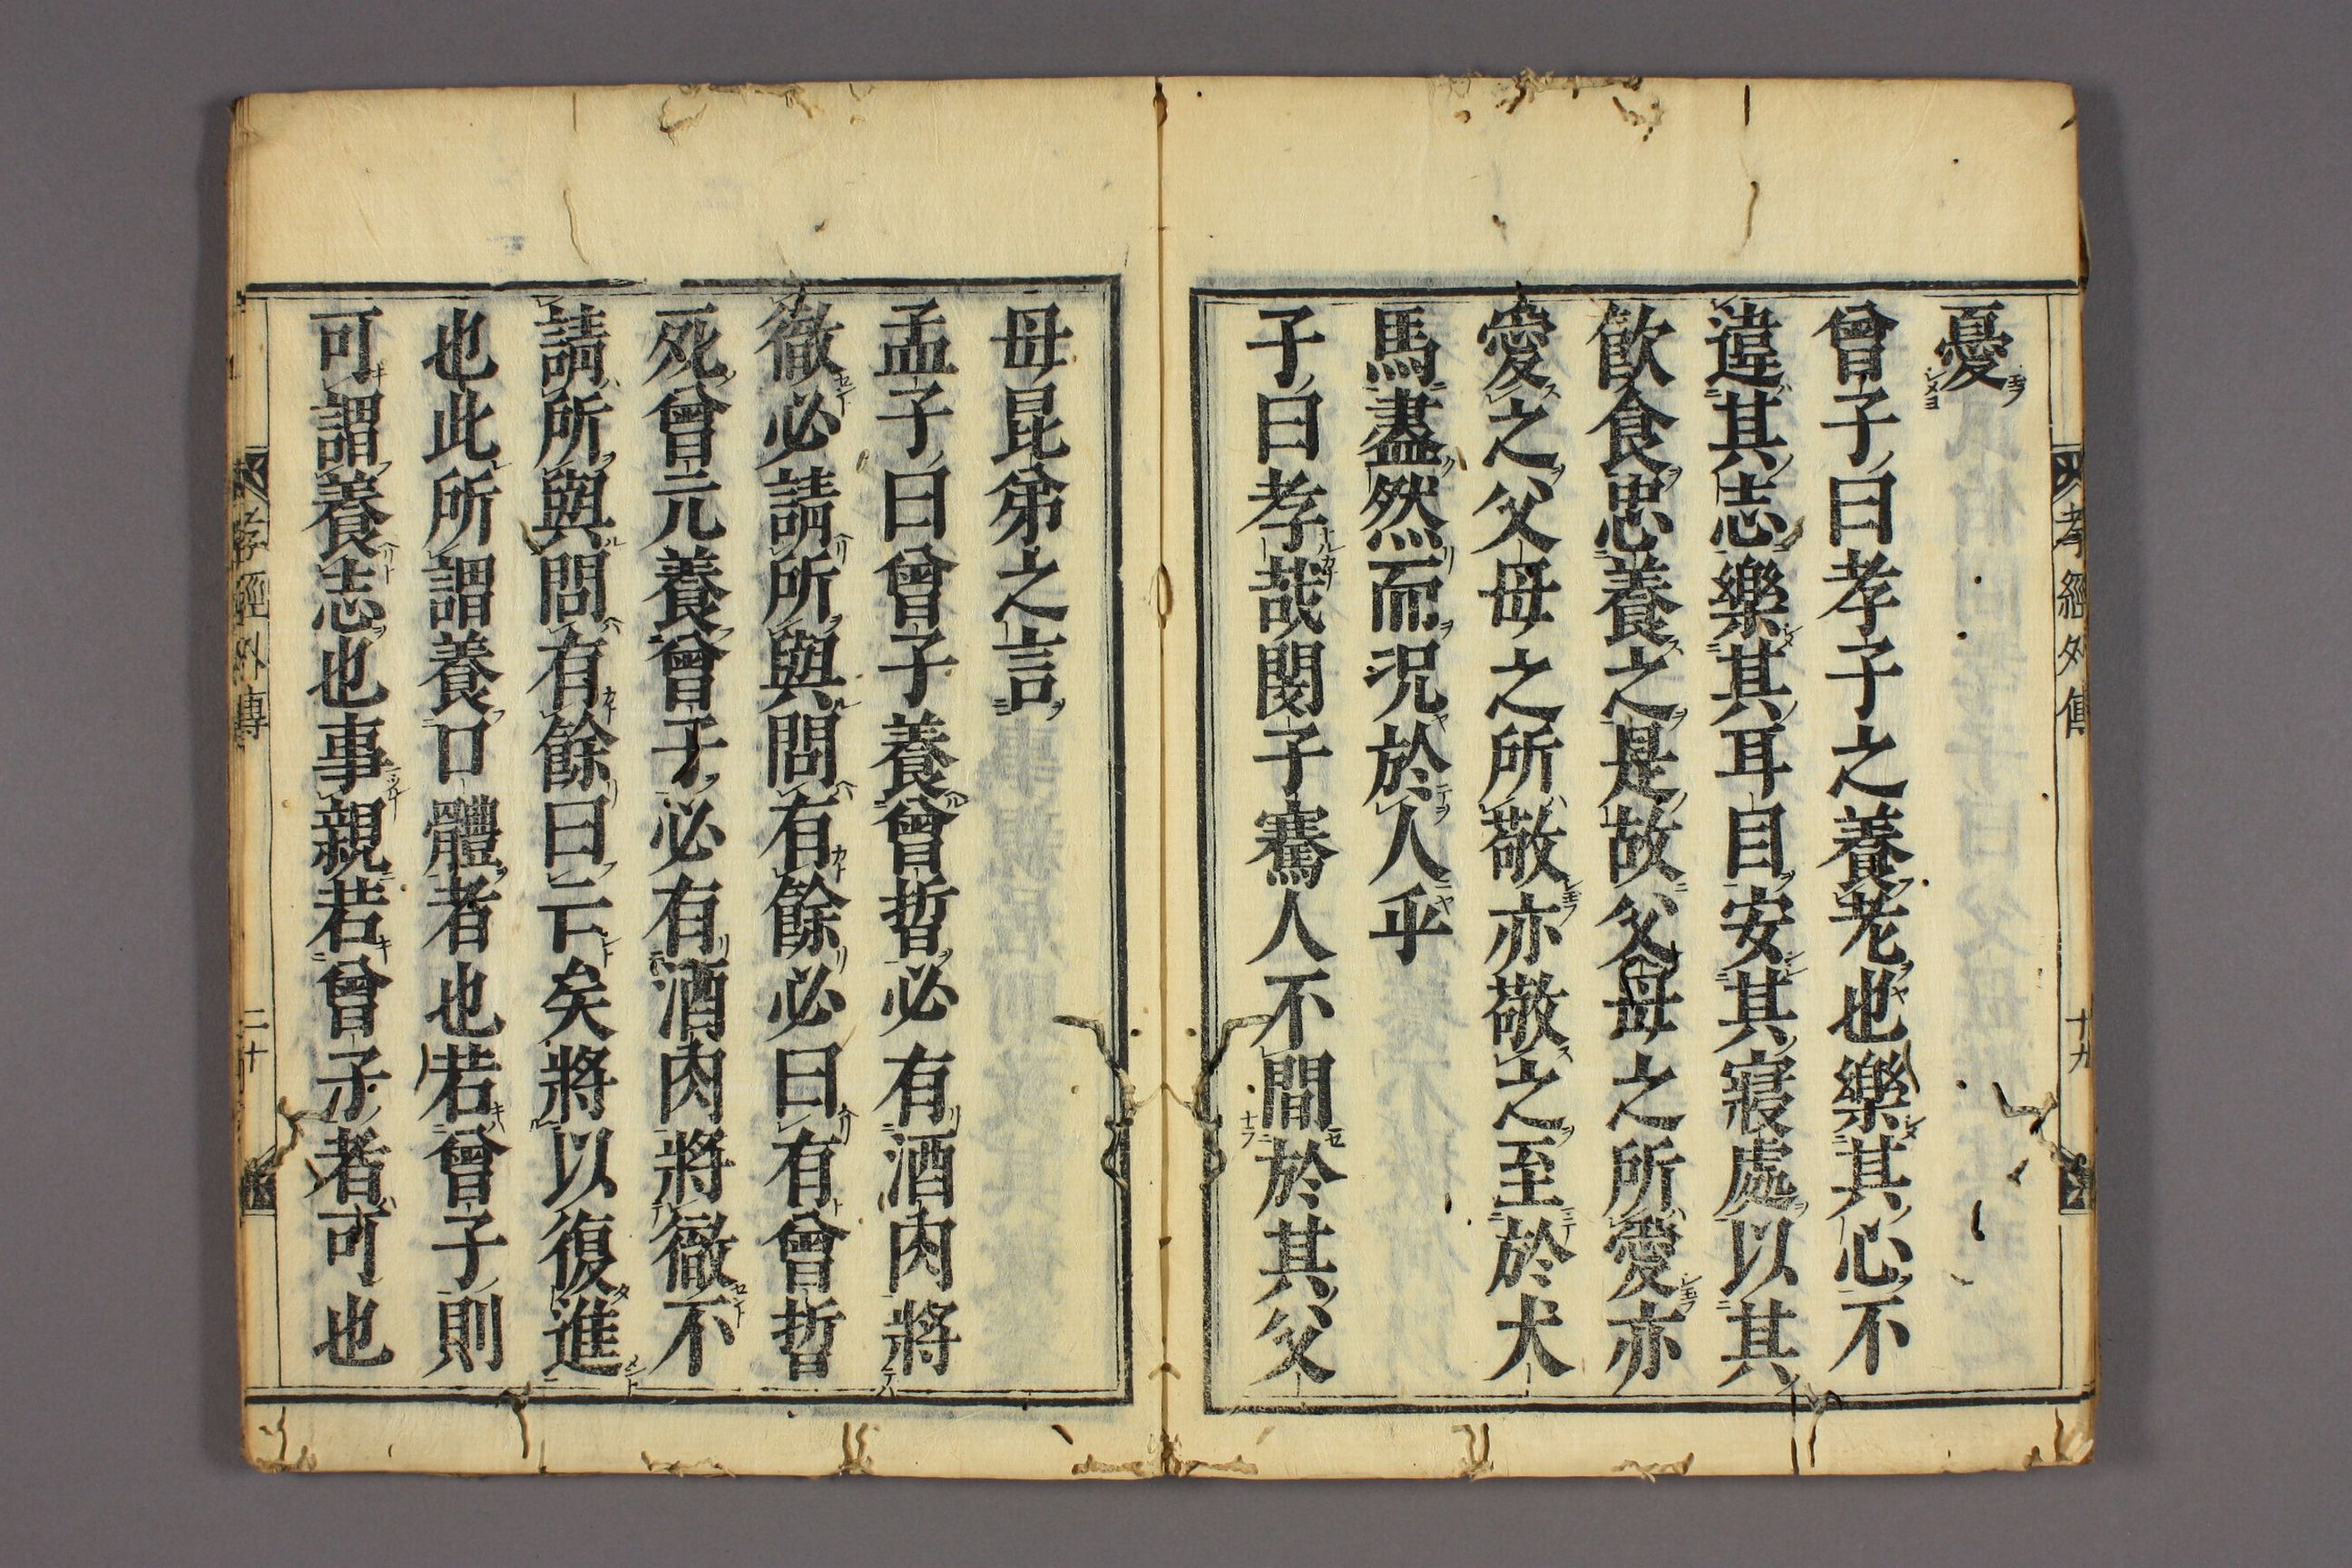 憂
曾子曰孝子之養老也樂其心不
違其志樂其耳目安其寢處以其
飲食忠養之是故父母之所愛亦
愛之父母之所敬亦敬之至於犬
馬盡然而況於人乎
子曰孝哉閔子騫人不間於其父
孝經外傳
十九
母昆弟之言
孟子曰曾子養曾晢必有酒肉將
徹必請所與問有餘必曰有曾晢
死曾元養曾子必有酒肉將徹不
請所與問有餘曰云矣將以復進
也此所謂養口體者也若曾子則
可謂養志也事親若曾子者可也
孝經外傳
二十